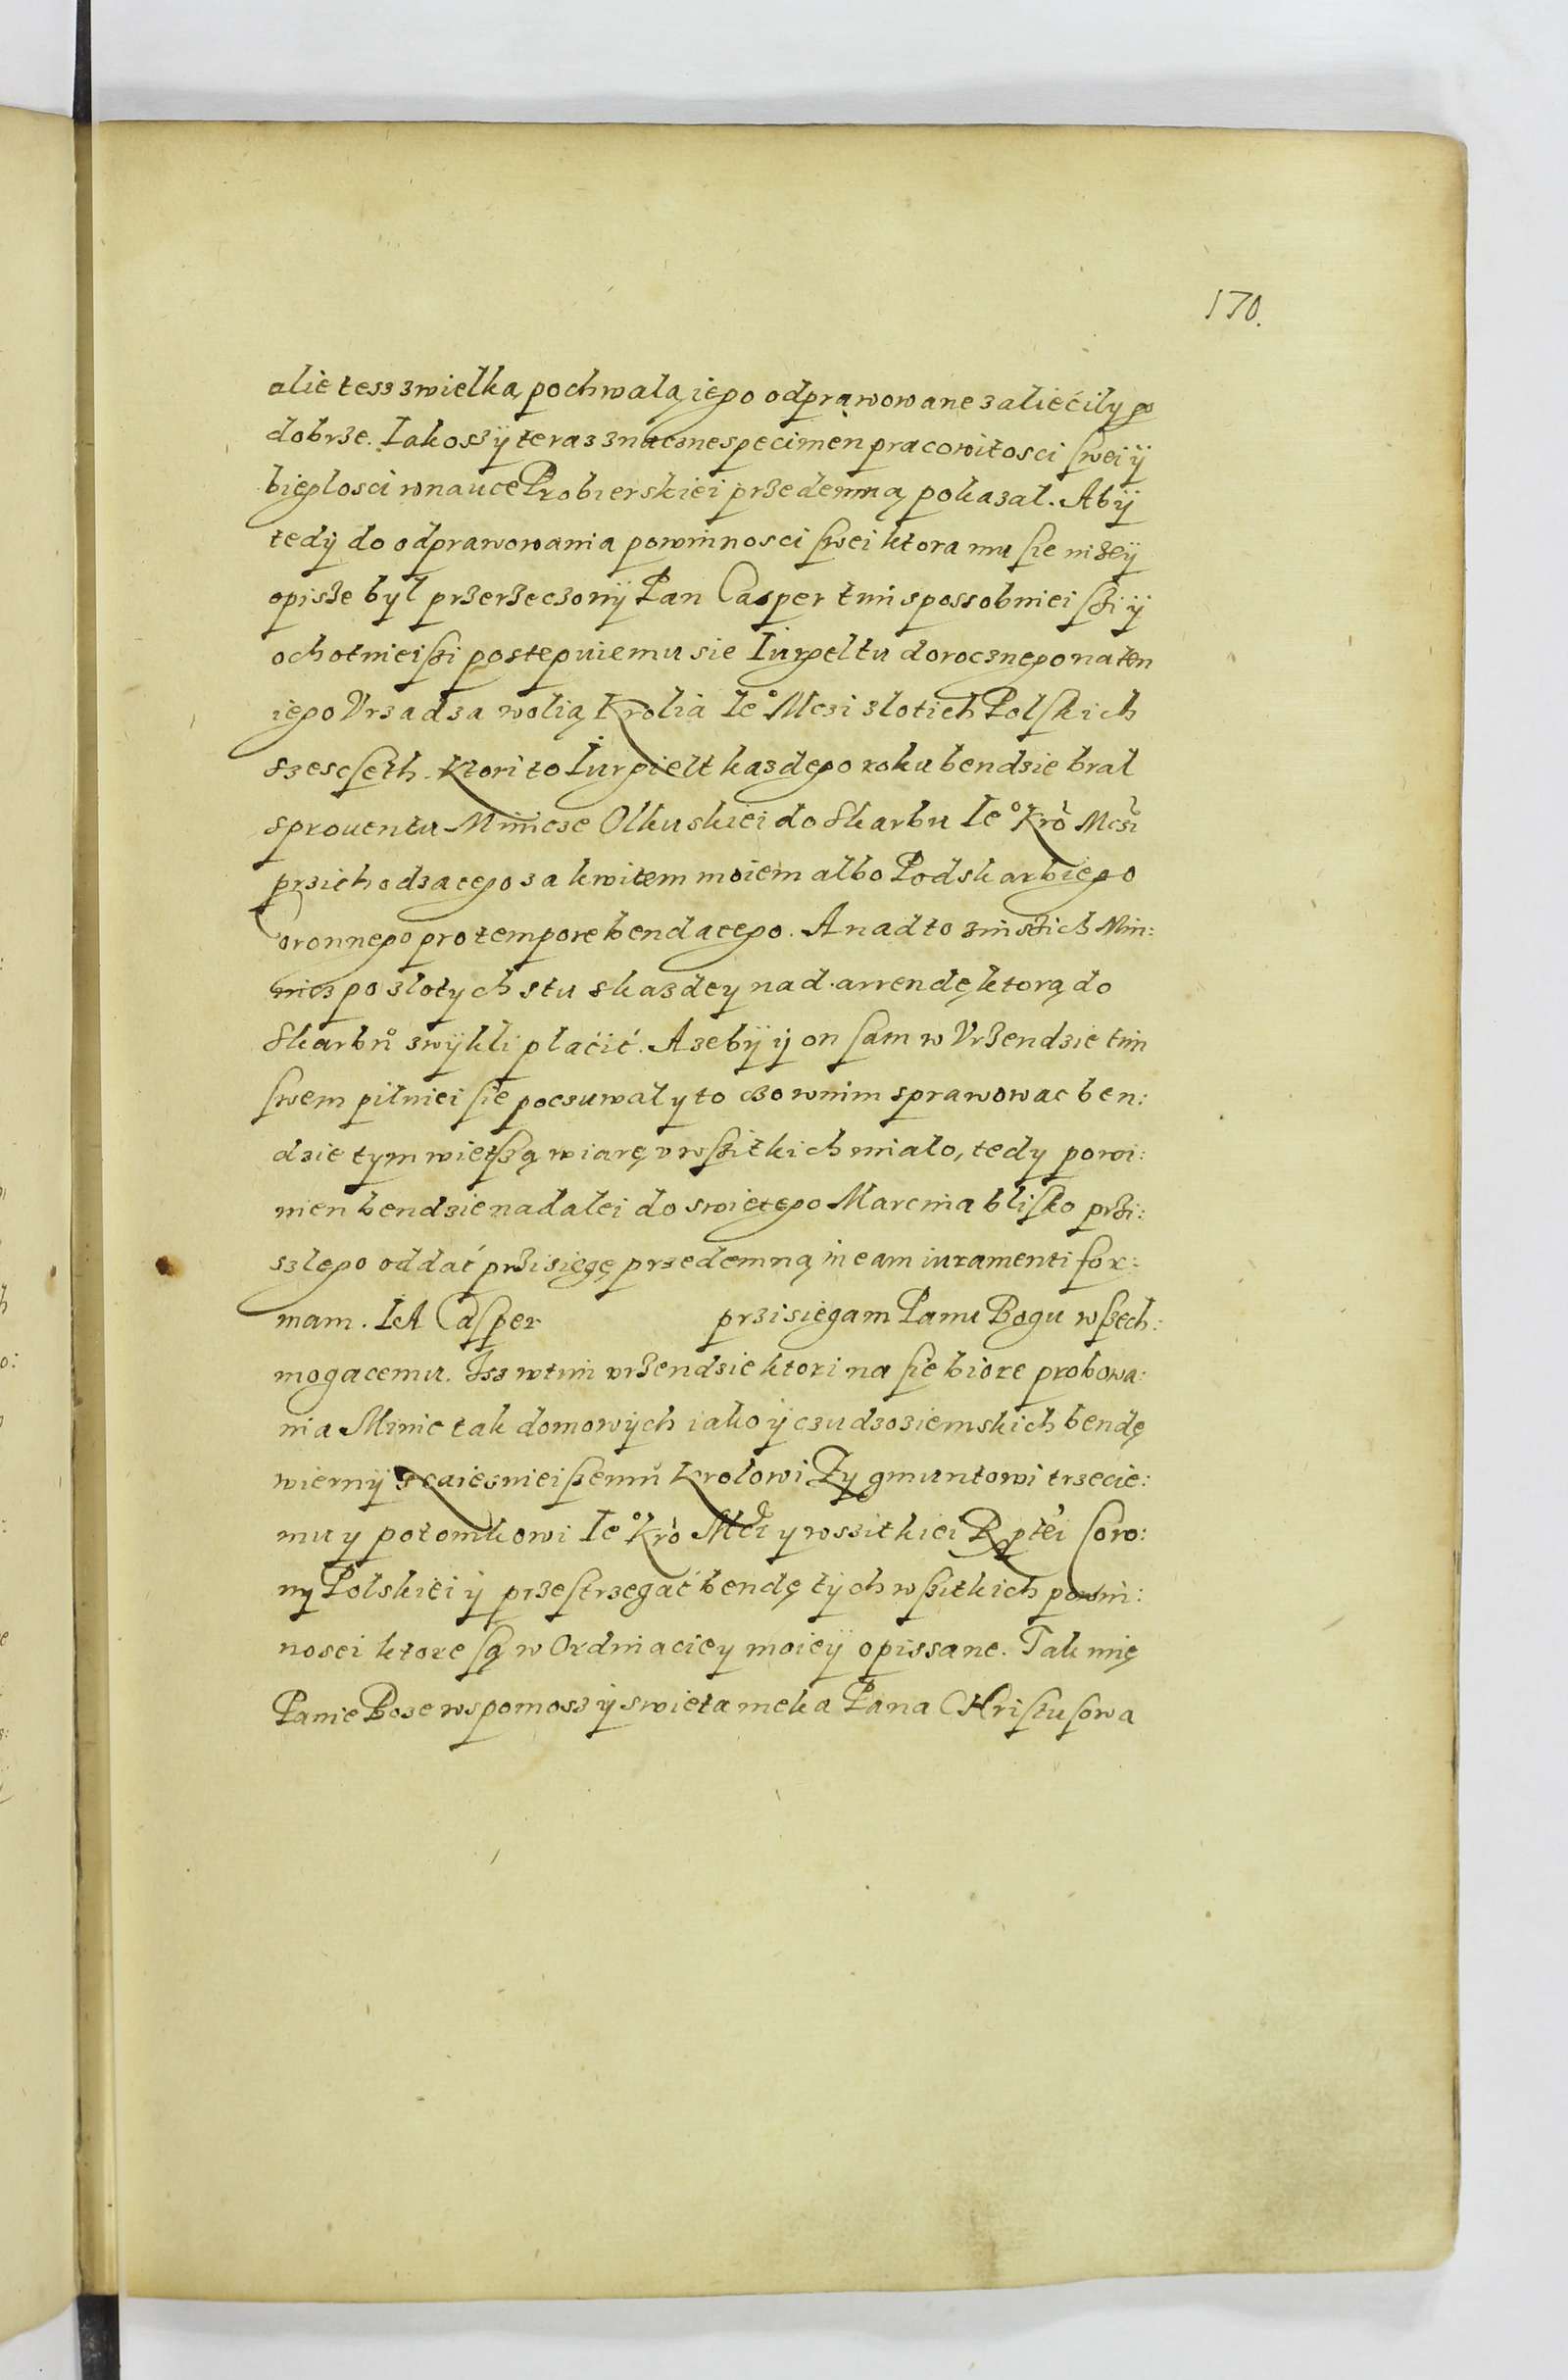 170.
alie tess z wielką pochwalą iego odprawowane zaliećily go
dobrze. Iakossÿ teraz znacznespecimen pracowitosci ſwei ÿ
biegłosci w nauce Probierskiei przedemną pokazal. Abÿ
tedÿ do odprawowania powinnosci ſwei ktora mu ſie niżeÿ
opisże był przerzeczonÿ Pan Casper tim spossobniei ſżi ÿ
ochotnieiſżi postepuiemu sie Iurgeltu dorocznego na ten
iego Vrząd za wolią Krolia Ie° Mczi zlotich Polſkich
szescſeth. Ktori to Iurgielt kazdego roku bendzie bral
s prouentu Minicze Olkuskiei do Skarbu Ie° Kro Mczi
przichodzacego za kwitem moiem albo Podskarbiego
Coronnego pro tempore bendacego. A nad to z inszich Min:
nicz po zlotych stu s kazdey nad arrendę ktorą do
Skarbů zwÿkli płaćić. A zebÿ ij on ſam w Vrżendzie tim
ſwem pilniei ſie poczuwal y to czo w nim sprawowac ben:
dzie tym wietſzą wiarę v wſżitkich mialo, tedy powi:
nien bendzie nadalei do swiętego Marcina bliſko prżi:
szlego oddać prżisięgę przedemną in eam iuramenti for:
mam. IA Caſper przisiegam Panu Bogu wſzech:
mogacemu. Iss w tim vrżendzie ktori na ſie biore probowa:
nia Minic tak domowÿch iako ÿ czudzoziemskich bendę
wiernÿ Naiesnieiſzemů Krolowi Zygmuntowi trzecie:
mu y potomkowi Ie° Kro Mći y wszitkiei Rptei Coro:
ny Polskiei ÿ przeſtrzegać bendę tÿch wſżitkich powin:
nosci ktore ſą w Ordinaciey moieÿ opissane. Tak mię
Panie Boze wspomosz ÿ swieta meka Pana CHriſtuſowa